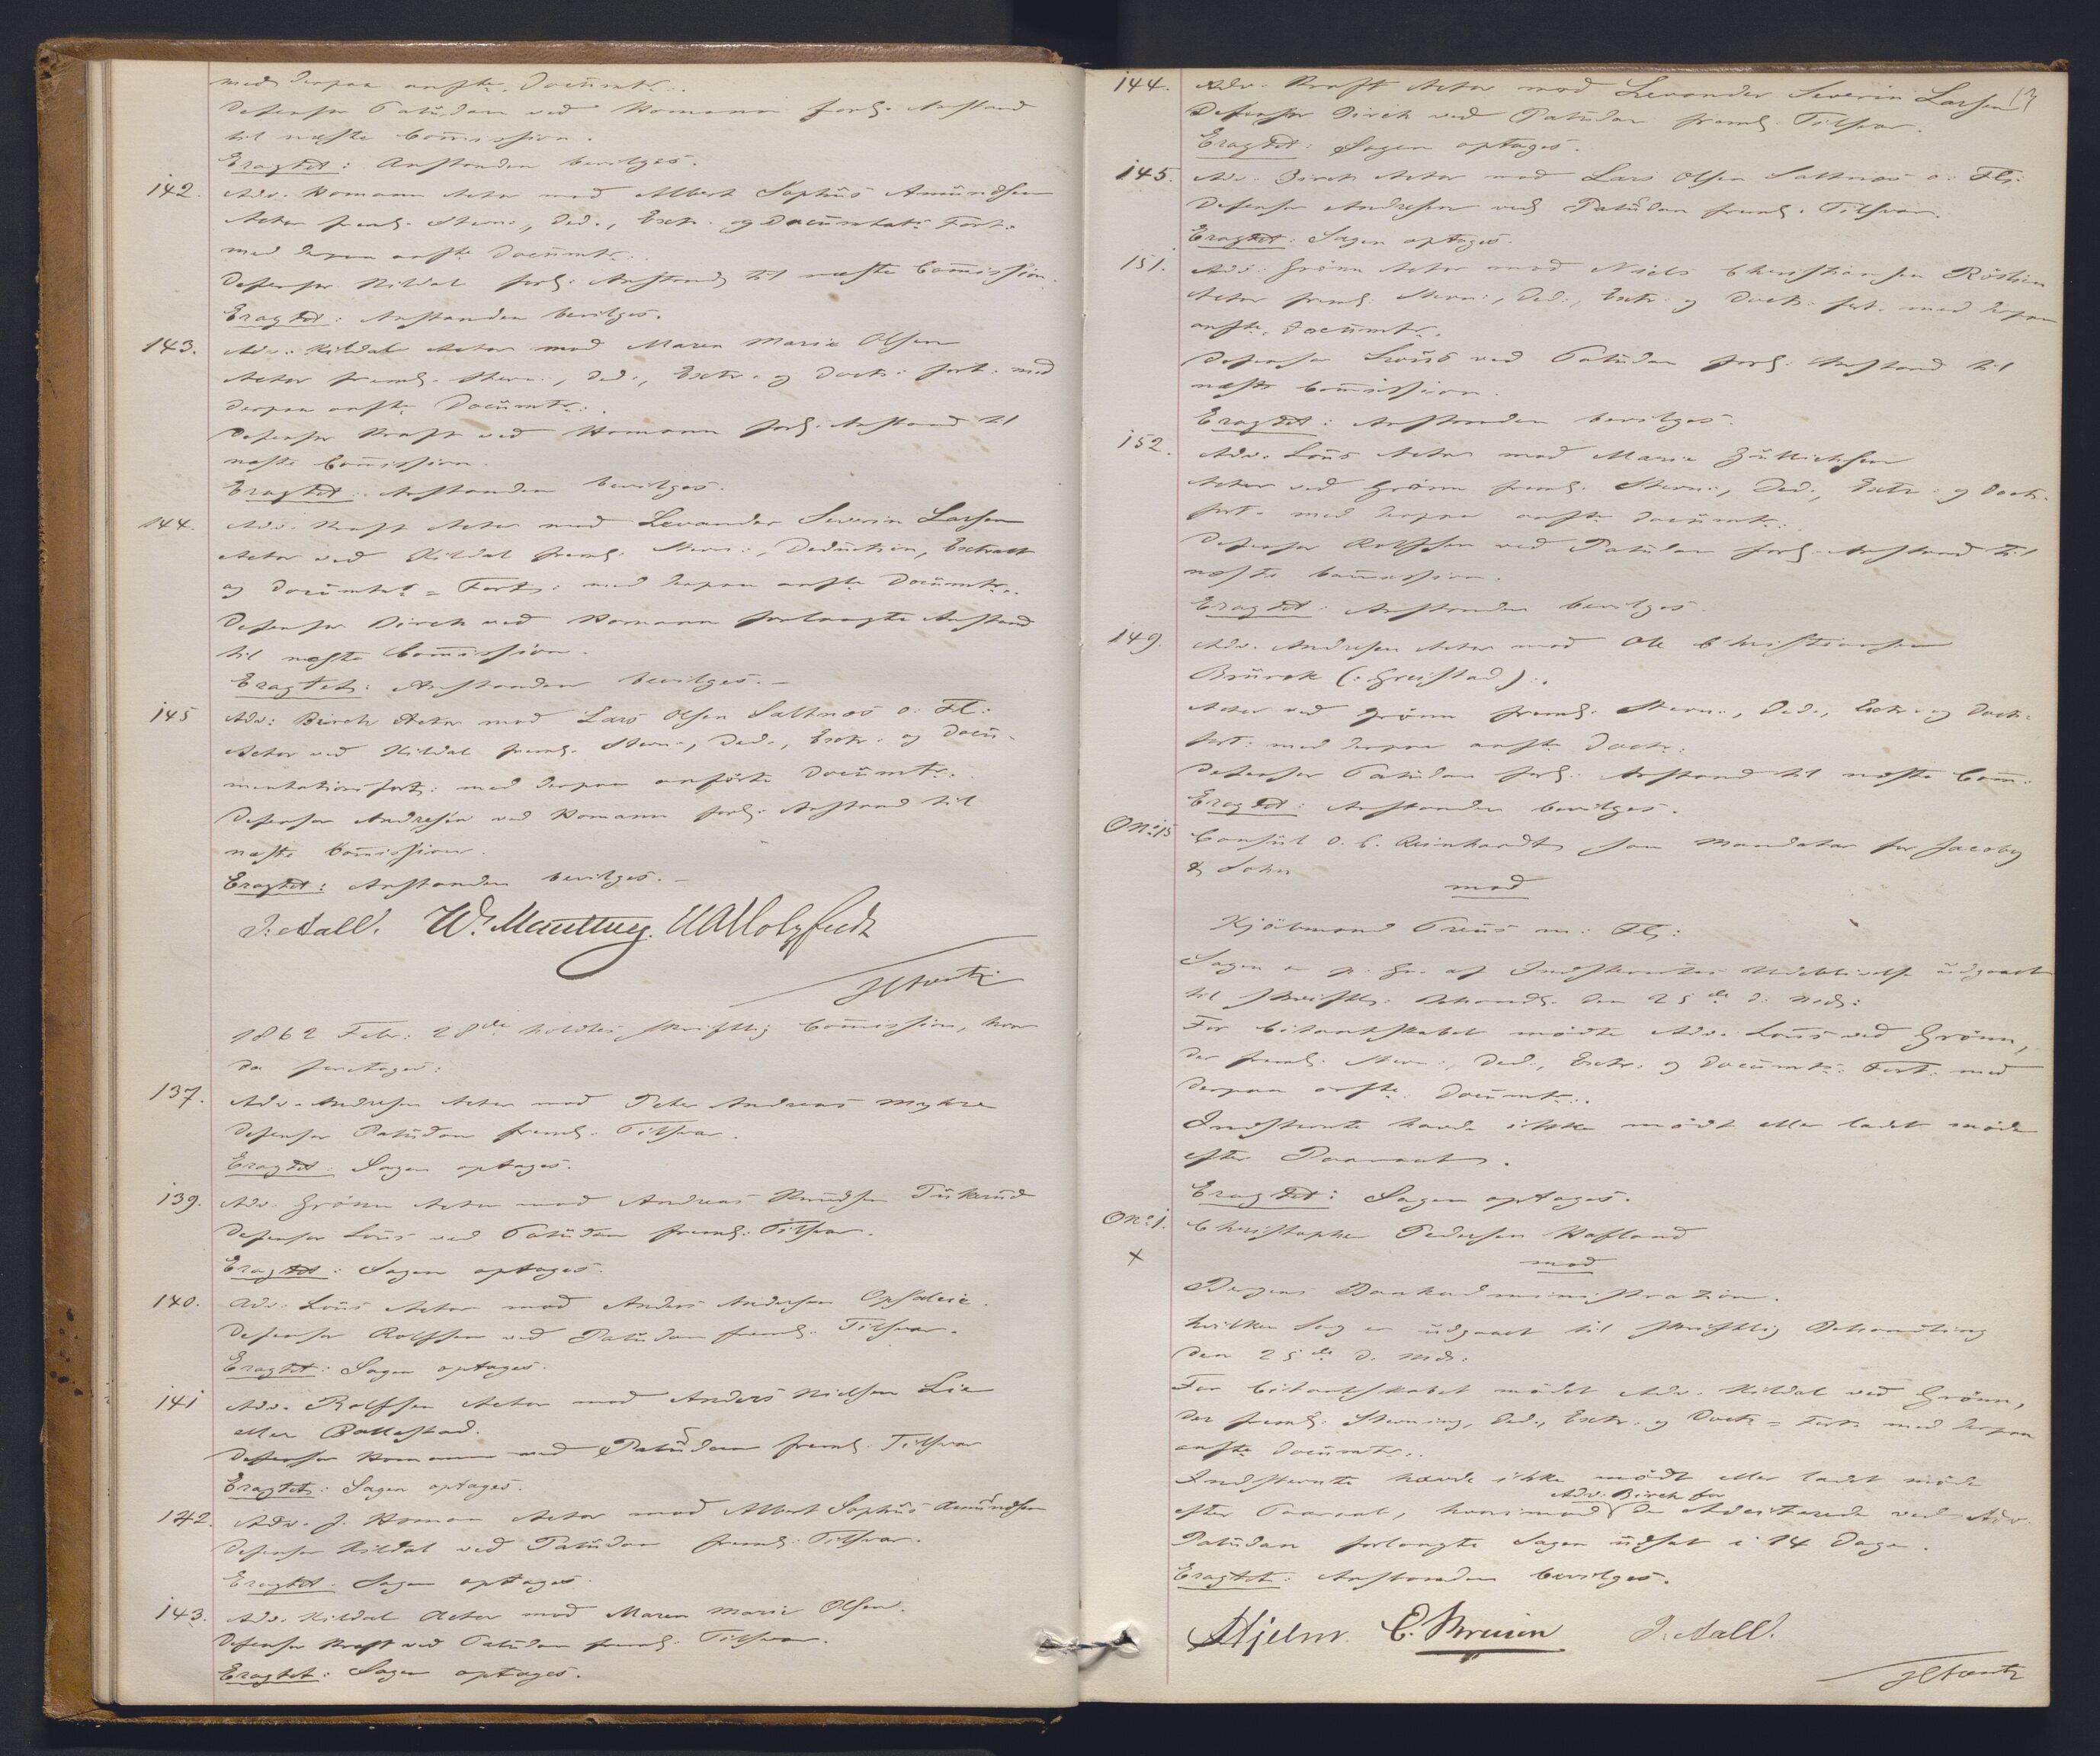 med derpaa anfte. Documtr:.
Defensor Paludan ved Homann forl. Anstand
til næste Commission.
Eragtet: Anstanden bevilges.
142. Adv. Homann Actor mod Albert Sophus Amundsen
Actor freml. Stevn:, Ded., Extr. og Documtat: Fort:
med derpaa anfte Documtr:.
Defensor Kildal forl: Anstand til næste Commission.
Eragtet: Anstanden bevilges.
143. Adv. Kildal Actor mod Maren Marie Olsen
Actor freml. Stevn:, Ded., Extr. og Doct: fort: med
derpaa anfte Documtr:.
Defensor Kraft ved Homann forl. Anstand til
næste Commission.
Eragtet: Anstanden bevilges.
144. Adv. Kraft Actor mod Levander Severin Larsen
Actor ved Kildal freml: Stevn:, Deduction, Extract
og Documtat = Fort: med derpaa anfte Documtr:.
Defensor Birch ved Homann forlangte Anstand
til næste Commission.
Eragtet: Anstanden bevilges.-
145 Adv: Birch Actor mod Lars Olsen Saltnæs o: Fl:
Actor ved Kildal freml. Stevn:, Ded., Extr: og Docu-
mentationsfort: med derpaa anførte Documtr.
Defensor Andresen ved Homann forl: Anstand til
næste Commission.
Eragtet: Anstanden bevilges.-
J. Aall.
1862 Febr: 28de holdtes skriftlig Commission, hvor
da foretoges:
137. Adv. Andresen Actor mod Peter Andreas Myhre
Defensor Paludan freml. Tilsvar.
Eragtet: Sagen optages.
139. Adv. Grönn Actor mod Andreas Knudsen Tukerud
Defensor Lous ved Paludan freml: Tilsvar.
Eragtet: Sagen optages.
140. Adv: Lous Actor mod Anders Andersen Opsaleie.
Defensor Rolfsen ved Paludan freml: Tilsvar.
Eragtet: Sagen optages.
141 Adv. Rolfsen Actor mod Anders Nielsen Lie
eller Bollestad.
Defensor Homann ved Paludan freml. Tilsvar
Eragtet: Sagen optages.
142. Adv. J. Homan Actor mod Albert Sophus Amundsen
Defensor Kildal ved Paludan freml: Tilsvar.
Eragtet: Sagen optages
143. Adv. Kildal Actor mod Maren Marie Olsen.
Defensor Kraft ved Paludan freml: Tilsvar.
Eragtet: Sagen optages.
13
144. Adv. Kraft Actor mod Levander Severin Larsen
Defensor Birch ved Paludan freml. Tilsvar.
Eragtet: Sagen optages.
145. Adv. Birch Actor mod Lars Olsen Saltnæs o: Fl:
Defensor Andresen ved Paludan freml. Tilsvar.
Eragtet: Sagen optages.
151. Adv: Grönn Actor mod Niels Christiansen Röslien
Actor freml: Stevn:, Ded:, Extr: og Doct: fort. med derpaa
anfte. Documtr.
Defensor Lous ved Paludan forl: Anstand til
næste Commission.
Eragtet: Anstanden bevilges.
152. Adv. Lous Actor mod Marie Züllichsen
Actor ved Grönn freml. Stevn:, Ded., Extr: og Doct:
fort. med derpaa anfte Documtr:
Defensor Rolfsen ved Paludan forl. Anstand til
næste Commission.
Eragtet: Anstanden bevilges.
149. Adv. Andresen Actor mod Ole Christiansen
Brurok (: Greistad):.
Actor ved Grönn freml. Stevn:, Ded., Extr: og Doct:
fort: med derpaa anfte Doctr:
Defensor Paludan forl: Anstand til næste Comm:
Eragtet: Anstanden bevilges.
O No: 15 Consul O. C. Reinhardt som Mandatar for Jacoby
& Sohn
mod
Kjöbmand Preus m: Fl:
Sagen er p: Gr. af Indstevntes Udeblivelse udgaaet
til skriftl: Behandl. den 25de d: Mds:
For Citantskabet mödte Adv. Lous ved Grönn,
der freml. Stevn:, Ded., Extr: og Documt: Fort: med
derpaa anfte. Documtr:.
Indstevnte havde ikke mödt eller ladet möde
efter Paaraab.
Eragtet: Sagen optages.
O No: 1. Christopher Pedersen Hafland
×
mod
Bergens Bankadministration.
hvilken Sag er udgaaet til skriftlig Behandling
den 25de d. Mds:
For Citantskabet mödte Adv. Kildal ved Grönn,
der freml: Stevning, Ded., Extr: og Doct = Fort: med derpaa
anfte Documtr:.
Indstevnte havde ikke mödt eller ladet möde
efter Paaraab, hvorimod Adv: Birch for de Adciterede ved Adv.
Paludan forlangte Sagen udsat i 14 Dage.
Eragtet: Anstanden bevilges.
Hjelm. J. Aall.